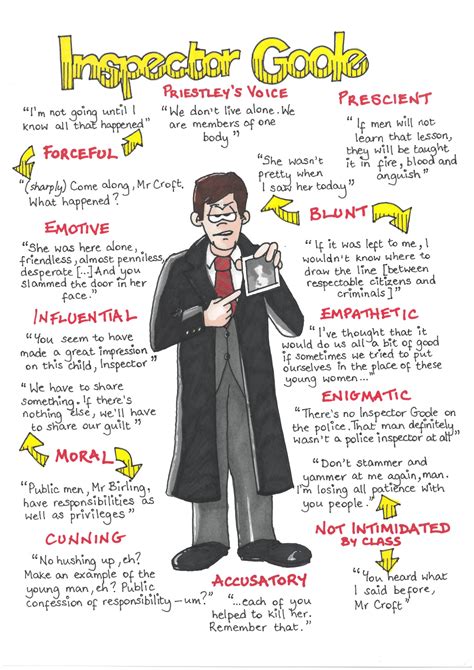 Inspector Goole
PRIESTLEY'S VOICE
"We don't live alone. We
are members of one
body"
"I'm not going until I
know all that happened"
FORCEFUL
"(sharply) Come along, Mr Croft.
What happened?
EMOTIVE
"She was here alone,
friendless, almost penniless,
desperate [...] And you
slammed the door in her
face."
INFLUENTIAL
"You seem to have
made a great impression
on this child, Inspector"
"We have to share
something. If there's
nothing else, we'll have
to share our guilt"
MORAL
"Public men, Mr Birling,
have responsibilities as
well as privileges"
CUNNING
"No hushing up, eh?
Make an example of the
young man, eh? Public
confession of responsibility – um?"
PRESCIENT
"If men will not
learn that lesson,
they will be taught
it in fire, blood and
anguish"
"She wasn't
pretty when
I saw her today"
BLUNT
"If it was left to me, I
wouldn't know where to
draw the line [between
respectable citizens and
criminals]"
EMPATHETIC
"I've thought that it
would do us all a bit of good
if sometimes we tried to put
ourselves in the place of these
young women..."
ENIGMATIC
"There's no Inspector Goole on
the police. That man definitely
wasn't a police inspector at all"
"Don't stammer and
yammer at me again, man.
I'm losing all patience with
you people."
NOT INTIMIDATED
BY CLASS
"You heard what
I said before,
Mr Croft"
ACCUSATORY
"...each of you
helped to kill her.
Remember that."